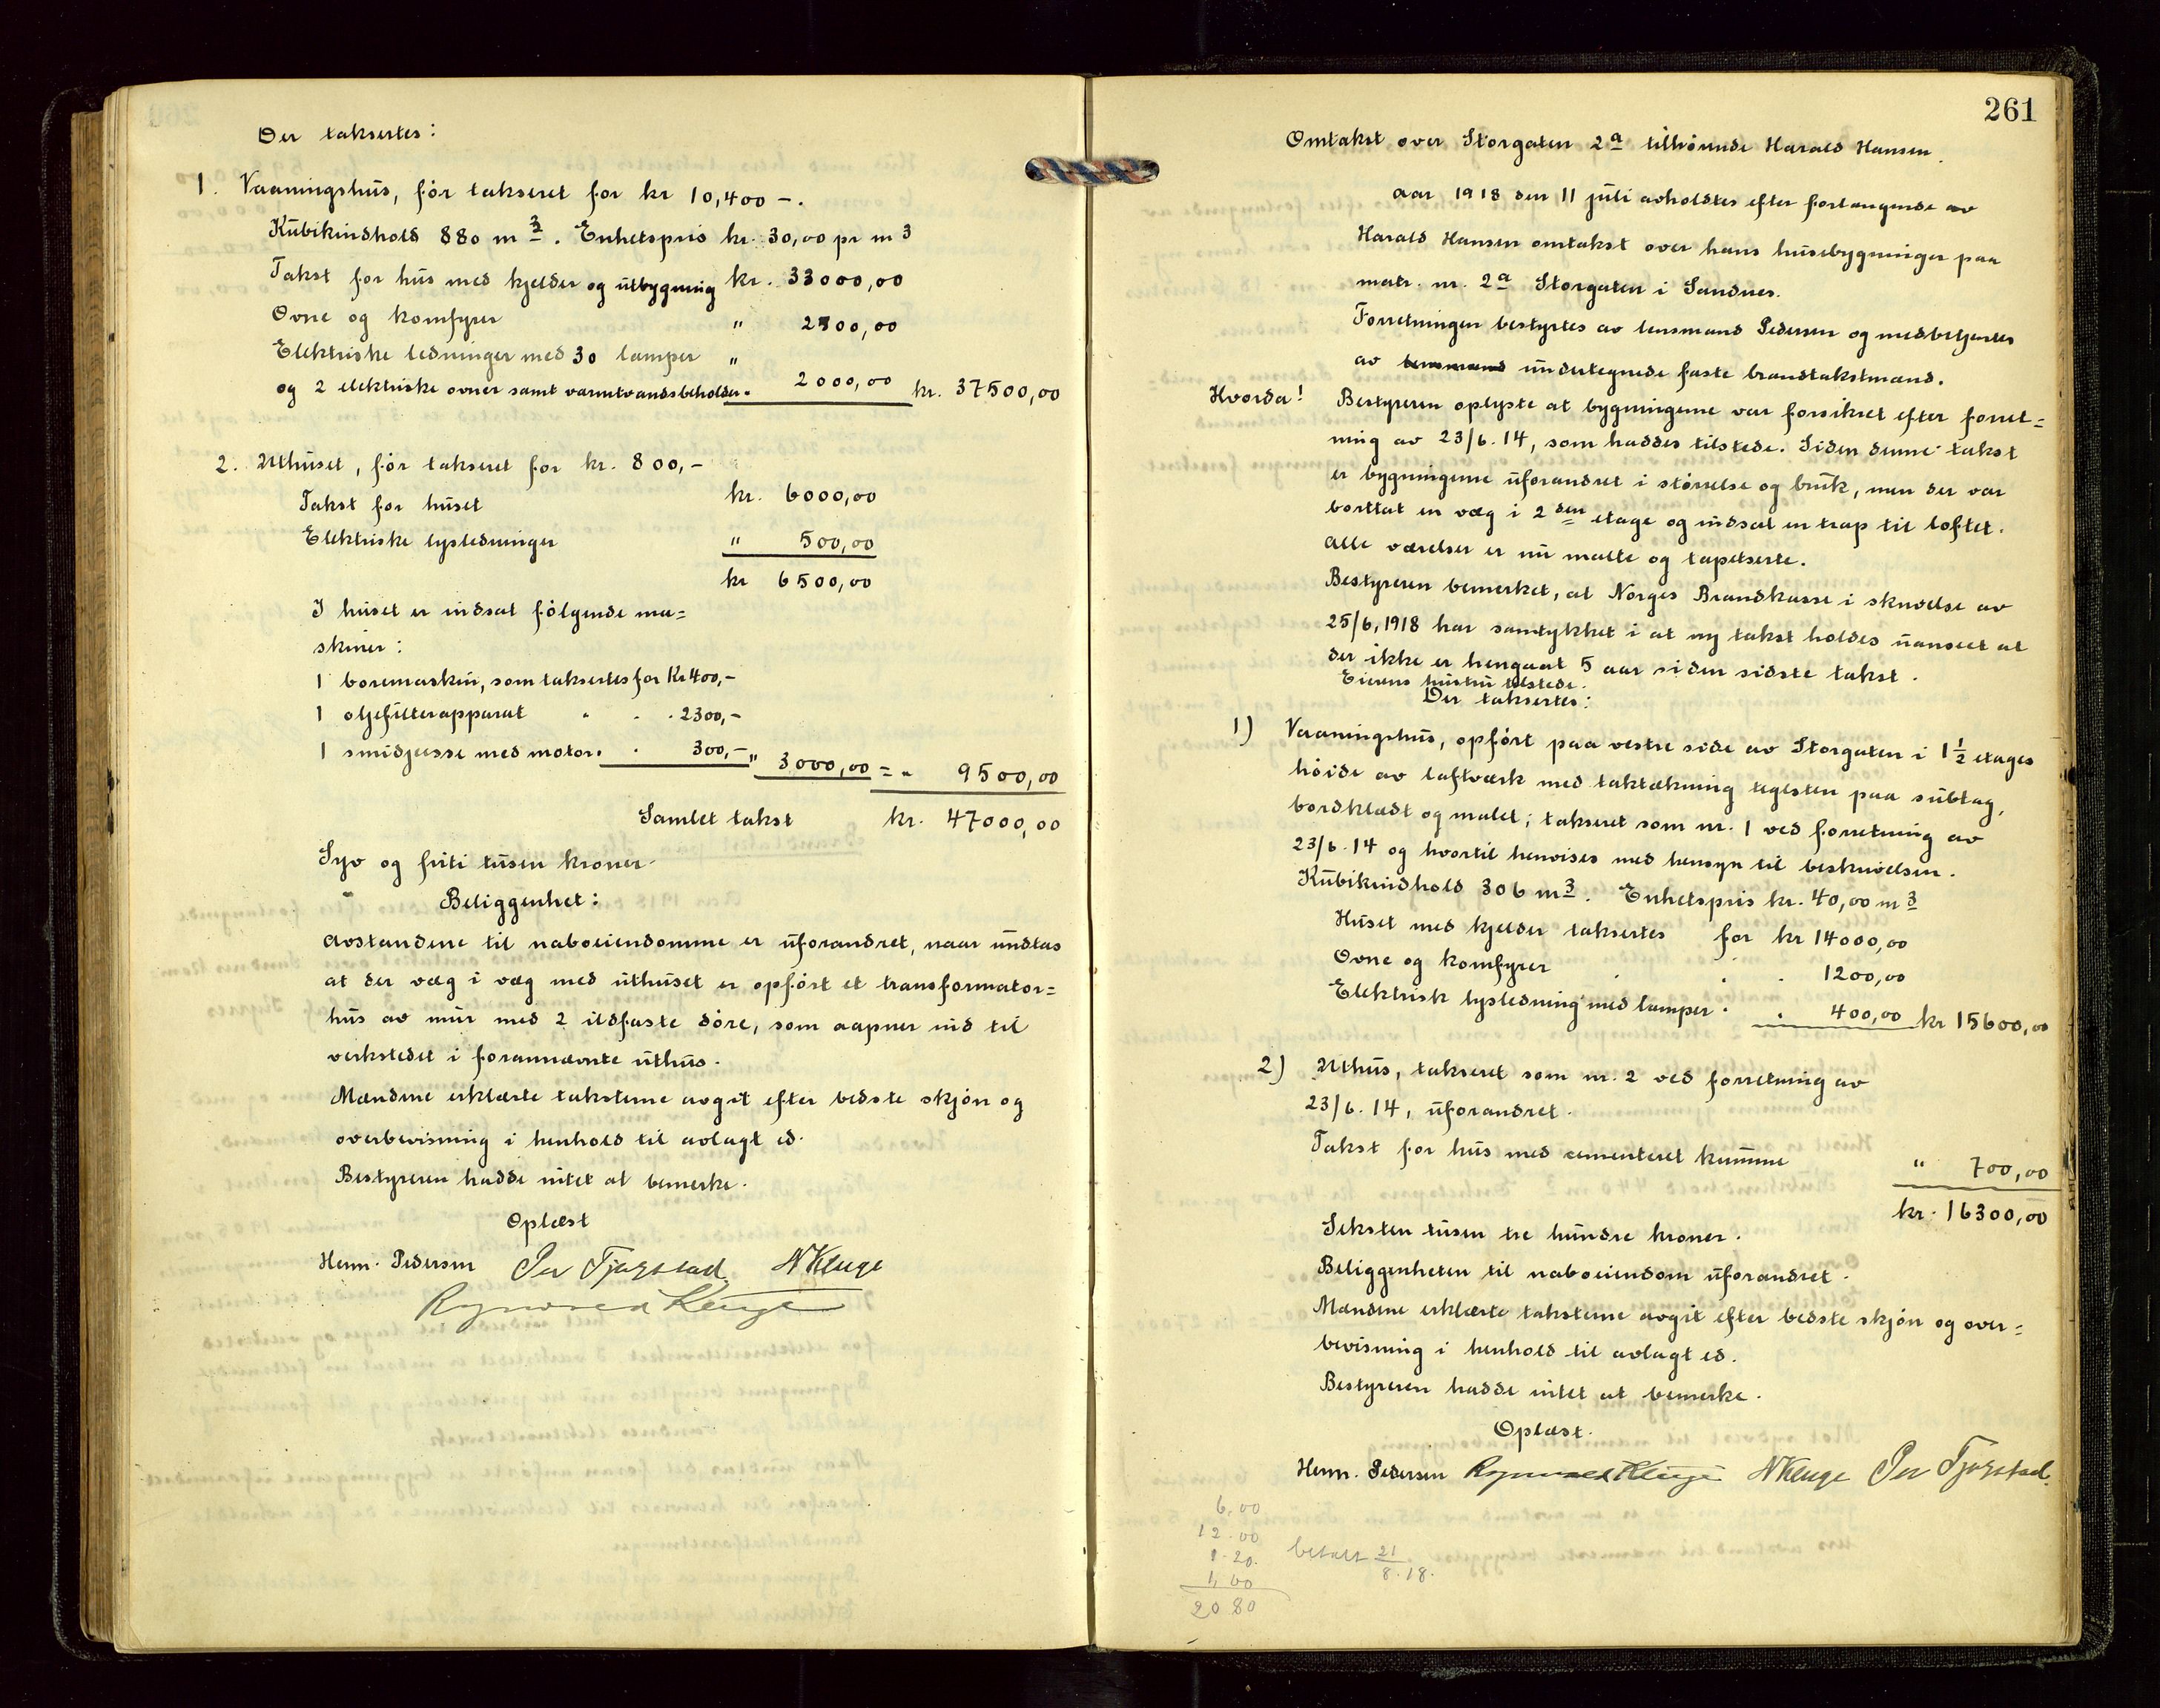 Der taksertes:
1. Vaaningshus, før takseret for kr 10,400 -.
Kubikindhold 880 m3. Enhetspris kr. 30,00 pr m3
Takst for hus med kjelder og utbygning kr. 33000,00
Ovne og komfyrer " 2500,00
Elektriske ledninger med 30 lamper "
og 2 elektriske ovner samt varmtvandsbeholder. 2000,00 kr. 37500,00
2. Uthuset, før takseret for kr. 800,-
Takst for huset kr. 6000,00
Elektriske lysledninger " 500,00
kr 6500,00
I huset er indsat følgende ma=
skiner:
1 boremaskin, som taksertes for Kr 400,-
1 oljefilterapparat . . . 2300,-
1 smidjeesse med motor. . 300,- " 3000,00 = " 9500,00
Samlet takst kr. 47000,00
Syv og firti tusen kroner.
Beliggenhet:
Avstandene til naboeiendomme er uforandret, naar undtas
at der væg i væg med uthuset er opført et transformator=
hus av mur med 2 ildfaste døre, som aapner ind til
verkstedet i forannævnte uthus.
Mændene erklærte taksterne avgit efter bedste skjøn og
overbevisning i henhold til avlagt ed.
Bestyreren hadde intet at bemerke.
Oplæst
Herm. Pedersen Per Tjøgstad N Kluge
Rognvald Kluge
261
Omtakst over Storgaten 2a tilhørende Harald Hansen.
Aar 1918 den 11 juli avholdtes efter forlangende av
Harald Hansen omtakst over hans husebygninger paa
matr. nr. 2a Storgaten i Sandnes.
Forretningen bestyrtes av lensmand Pedersen og medbetjentes
av lensmand undertegnede faste brandtakstmænd.
Hvorda! Bestyreren oplyste at bygningerne var forsikret efter forret=
ning av 23/6. 14, som haddes tilstede. Siden denne takst
er bygningerne uforandret i størrelse og bruk, men der var
borttat en væg i 2den etage og indsat en trap til loftet.
Alle værelser er nu malte og tapetserte.
Bestyreren bemerket, at Norges Brandkasse i skrivelse av
25/6, 1918 har samtykket i at ny takst holdes uanseet at
der ikke er hengaat 5 aar siden sidste takst.
Eierens hustru tilstede.
Der taksertes:
1) Vaaningshus, opført paa vestre side av Storgaten i 1 1/2 etages
høide av laftværk med taktækning teglsten paa subtag,
bordklædt og malet; takseret som nr. 1 ved forretning av
23/6. 14 og hvortil henvises med hensyn til beskrivelsen.
Kubikindhold 306 m3. Enhetspris kr. 40,00 m3
Huset med kjelder taksertes for kr 14000,00
Ovne og komfyrer . . . 1200,00
Elektrisk lysledning med lamper . . 400,00 kr 15600,00
2) Uthus, takseret som nr. 2 ved forretning av
23/6. 14, uforandret.
Takst for hus med cementeret kumme " 700,00
kr. 16300,00
Seksten tusen tre hundre kroner.
Beliggenheten til naboeiendom uforandret.
Mændene erklærte taksterne avgit efter bedste skjøn og over=
bevisning i henhold til avlagt ed.
Bestyreren hadde intet at bemerke.
Oplæst.
Herm. Pedersen Rognvald Kluge N Kluge Per Tjøgstad.
6,00
12.00
1.20.
1,60
20 80
betalt 21/8.18.